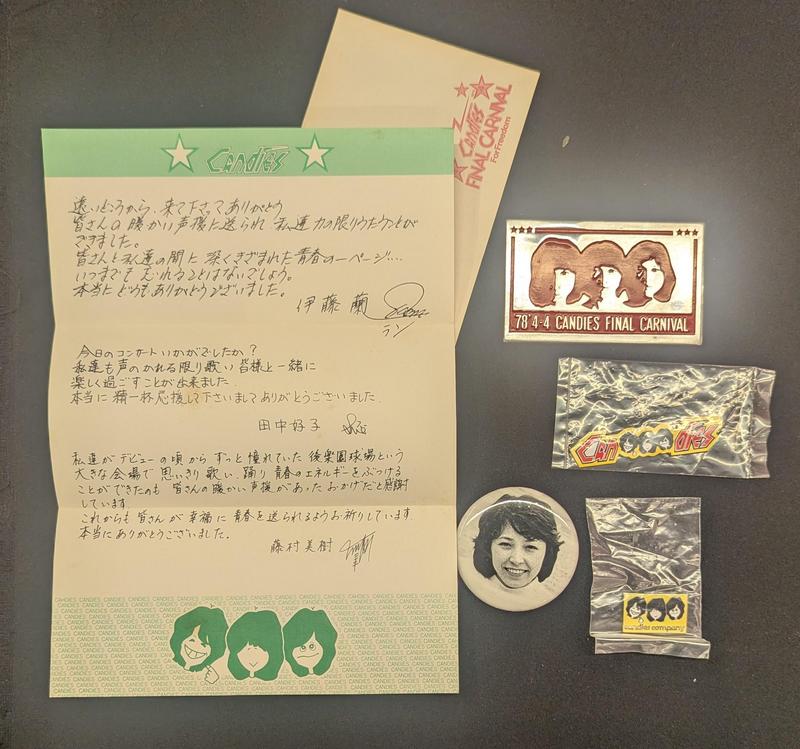 Candies
遠いところから、来て下さってありがとう
皆さんの暖かい声援に送られ 私達力の限りうたうことが
できました。
皆さんと私達の間に 深くきざまれた青春の一ページ…
いつまでも 忘れることはないでしょう。
本当に どうもありがとうございました。
伊藤 蘭
ラン
今日のコンサートいかがでしたか？
私達も声のかれる限り歌い 皆様と一緒に
楽しく過ごすことが出来ました。
本当に 精一杯応援して下さいましてありがとうございました。
田中好子
私達がデビューの頃から ずっと憧れていた 後楽園球場という
大きな会場で 思いきり歌い、踊り 青春のエネルギーをぶつける
ことができたのも 皆さんの暖かい声援があったおかげだと感謝
しています。
これからも 皆さんが 幸福に青春を送られるようお祈りしています。
本当にありがとうございました。
藤村美樹
CANDIES CANDIES CANDIES CANDIES CANDIES CANDIES
Candies
FINAL CARNIVAL
For Freedom
78'4-4 CANDIES FINAL CARNIVAL
CanDies
candies company